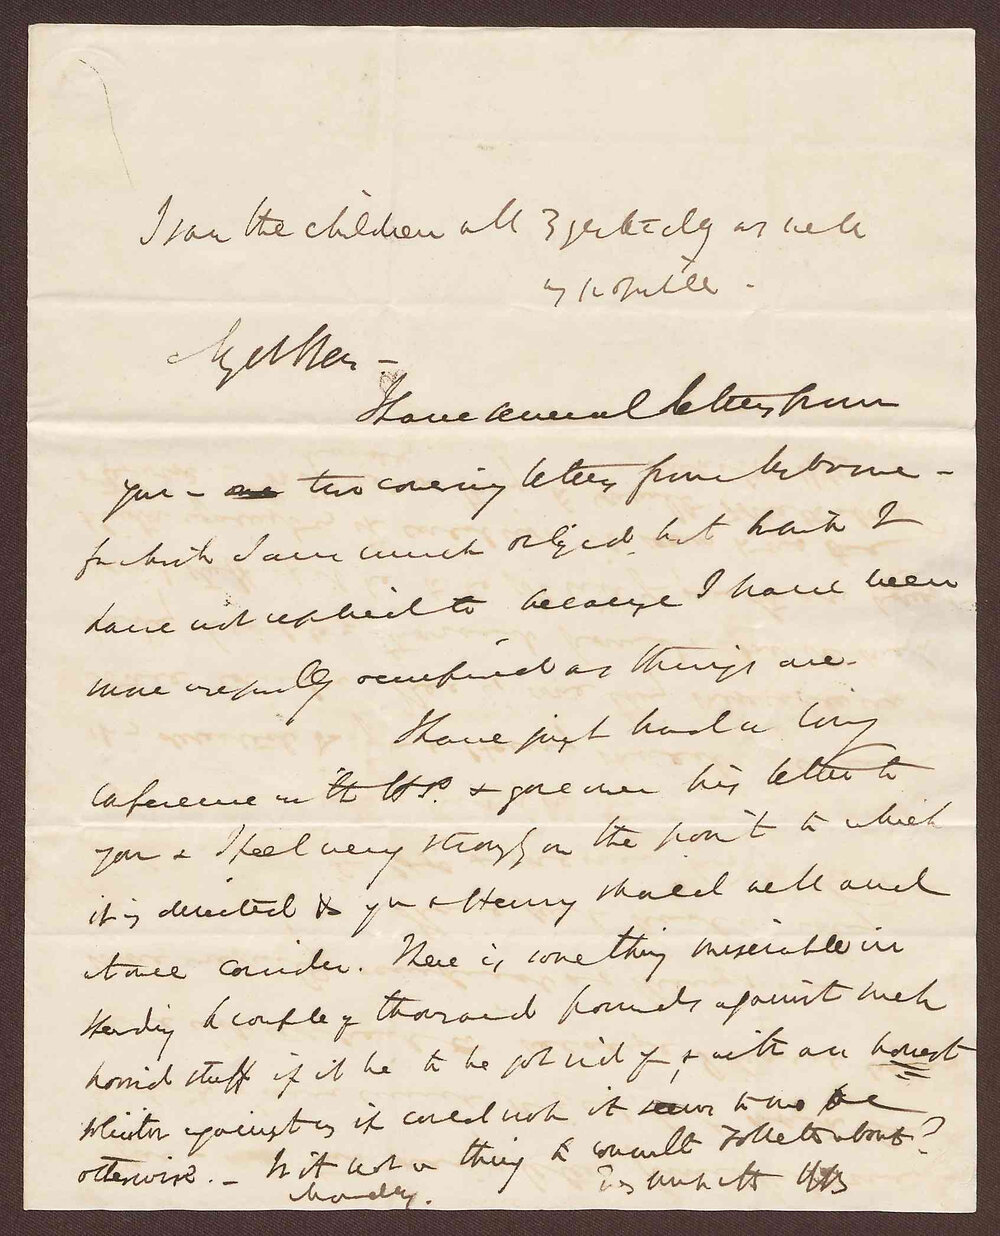 I saw the children all 3 yesterday as well
as possible -
My d
I have several letters from
you - one two covering letters from
for which I am much obliged, but which I
have not replied to because I have been
more usefully occupied as things are.
I have just had a long
conference with H.P. & gone over his letter to
you & I feel very strongly on the point to which
it is directed & you & Henry should well and
at once consider. There is something miserable in
a couple of thousand pounds against such
horrid stuff if it be to be got rid of, & with an honest
solicitor against us it could not it seems to me be
otherwise. - Is it not a thing to consult Follett about?
Monday. Ever